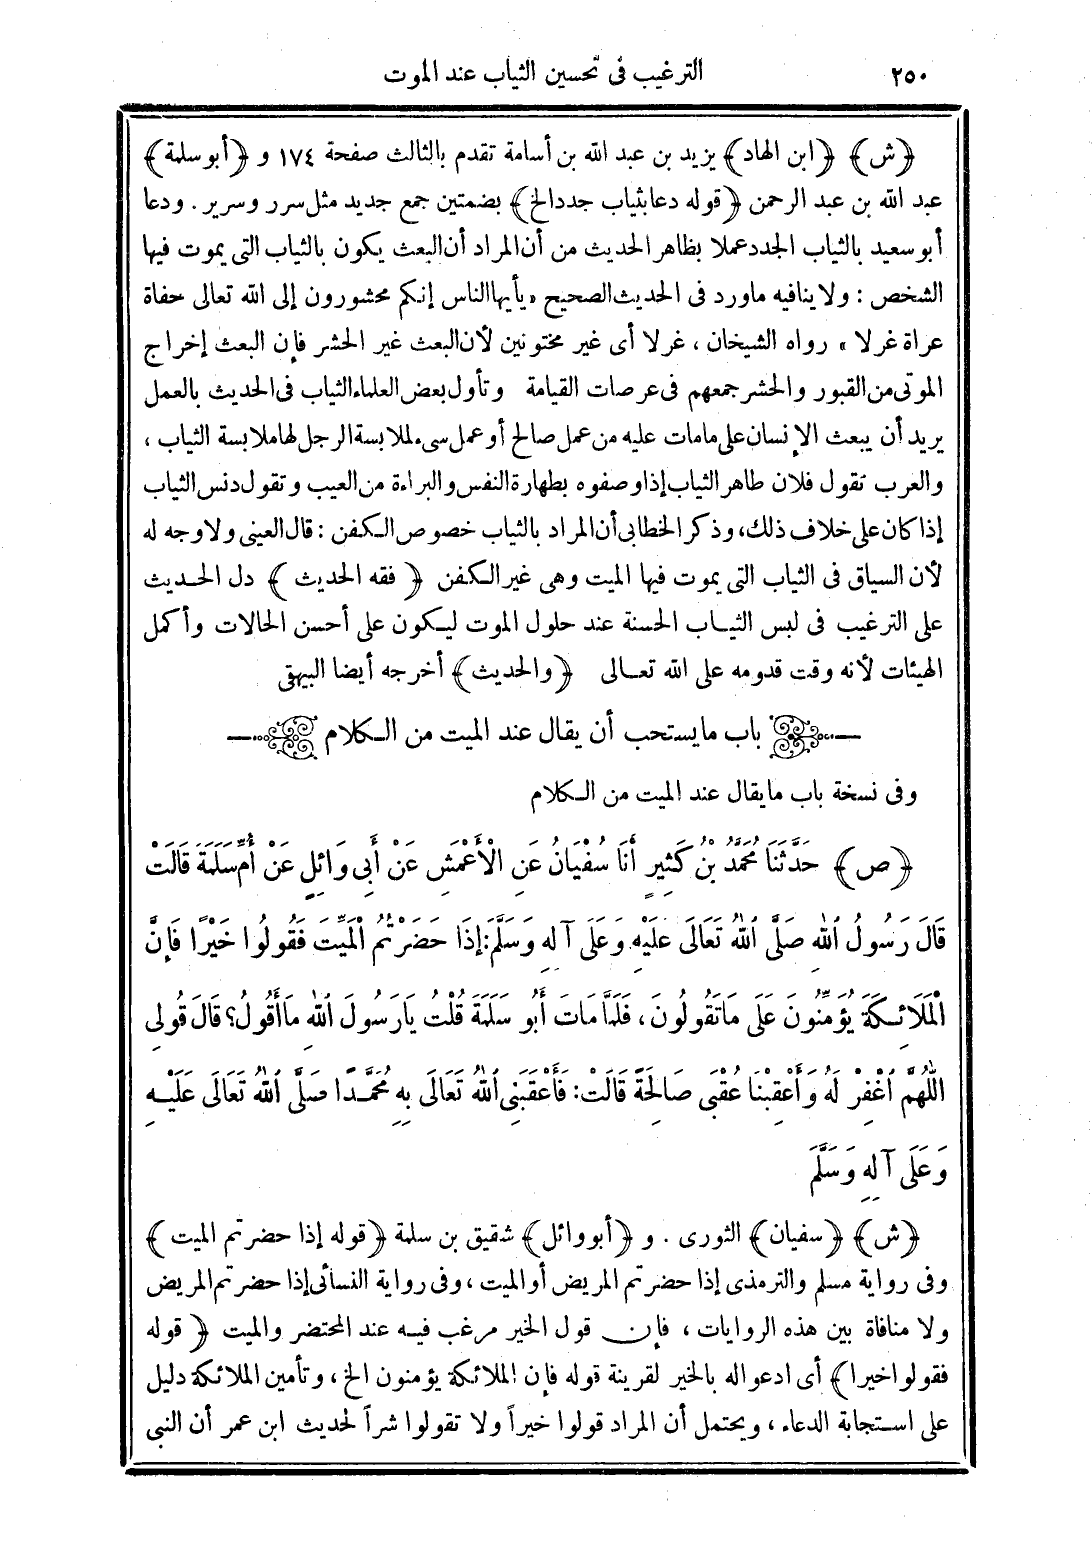 ٢٥٠ الترغيب فى تحسين الثياب عند الموت
﴿ش﴾ ﴿ابن الهاد﴾ يزيد بن عبد الله بن أسامة تقدم بالثالث صفحة ١٧٤ و ﴿أبو سلمة﴾
عبد الله بن عبد الرحمن ﴿قوله دعا بثياب جدد الخ﴾ بضمتين جمع جديد مثل سرر وسرير . ودعا
أبو سعيد بالثياب الجدد عملا بظاهر الحديث من أن المراد أن البعث يكون بالثياب التى يموت فيها
الشخص : ولا ينافيه ماورد فى الحديث الصحيح «يأيها الناس إنكم محشورون إلى الله تعالى حفاة
عراة غرلا» رواه الشيخان ، غرلا أى غير مختونين لأن البعث غير الحشر فإن البعث إخراج
الموتى من القبور والحشر جمعهم فى عرصات القيامة وتأول بعض العلماء الثياب فى الحديث بالعمل
يريد أن يبعث الإنسان على مامات عليه من عمل صالح أو عمل سىء لملابسة الرجل لها ملابسة الثياب ،
والعرب تقول فلان طاهر الثياب إذا وصفوه بطهارة النفس والبراءة من العيب وتقول دنس الثياب
إذا كان على خلاف ذلك ، وذكر الخطابى أن المراد بالثياب خصوص الكفن : قال العينى ولا وجه له
لأن السياق فى الثياب التى يموت فيها الميت وهى غير الكفن ﴿فقه الحديث﴾ دل الحديث
على الترغيب فى لبس الثياب الحسنة عند حلول الموت ليكون على أحسن الحالات وأكمل
الهيئات لأنه وقت قدومه على الله تعالى ﴿والحديث﴾ أخرجه أيضا البيهقى
باب مايستحب أن يقال عند الميت من الكلام
وفى نسخة باب مايقال عند الميت من الكلام
﴿ص﴾ حَدَّثَنَا مُحَمَّدُ بْنُ كَثِيرٍ أَنَا سُفْيَانُ عَنِ الْأَعْمَشِ عَنْ أَبِي وَائِلٍ عَنْ أُمِّ سَلَمَةَ قَالَتْ
قَالَ رَسُولُ اللهِ صَلَّى اللهُ تَعَالَى عَلَيْهِ وَعَلَى آلِهِ وَسَلَّمَ: إِذَا حَضَرْتُمُ الْمَيِّتَ فَقُولُوا خَيْرًا فَإِنَّ
الْمَلَائِكَةَ يُؤَمِّنُونَ عَلَى مَا تَقُولُونَ ، فَلَمَّا مَاتَ أَبُو سَلَمَةَ قُلْتُ يَا رَسُولَ اللهِ مَا أَقُولُ؟ قَالَ قُولِي
اللَّهُمَّ اغْفِرْ لَهُ وَأَعْقِبْنَا عُقْبَى صَالِحَةً قَالَتْ: فَأَعْقَبَنِي اللهُ تَعَالَى بِهِ مُحَمَّدًا صَلَّى اللهُ تَعَالَى عَلَيْهِ
وَعَلَى آلِهِ وَسَلَّمَ
﴿ش﴾ ﴿سفيان﴾ الثورى . و ﴿أبو وائل﴾ شقيق بن سلمة ﴿قوله إذا حضرتم الميت﴾
وفى رواية مسلم والترمذى إذا حضرتم المريض أو الميت ، وفى رواية النسائى إذا حضرتم المريض
ولا منافاة بين هذه الروايات ، فإن قول الخير مرغب فيه عند المحتضر والميت ﴿قوله
فقولوا خيرا﴾ أى ادعوا له بالخير لقرينة قوله فإن الملائكة يؤمنون الخ ، وتأمين الملائكة دليل
على استجابة الدعاء ، ويحتمل أن المراد قولوا خيراً ولا تقولوا شراً لحديث ابن عمر أن النبى